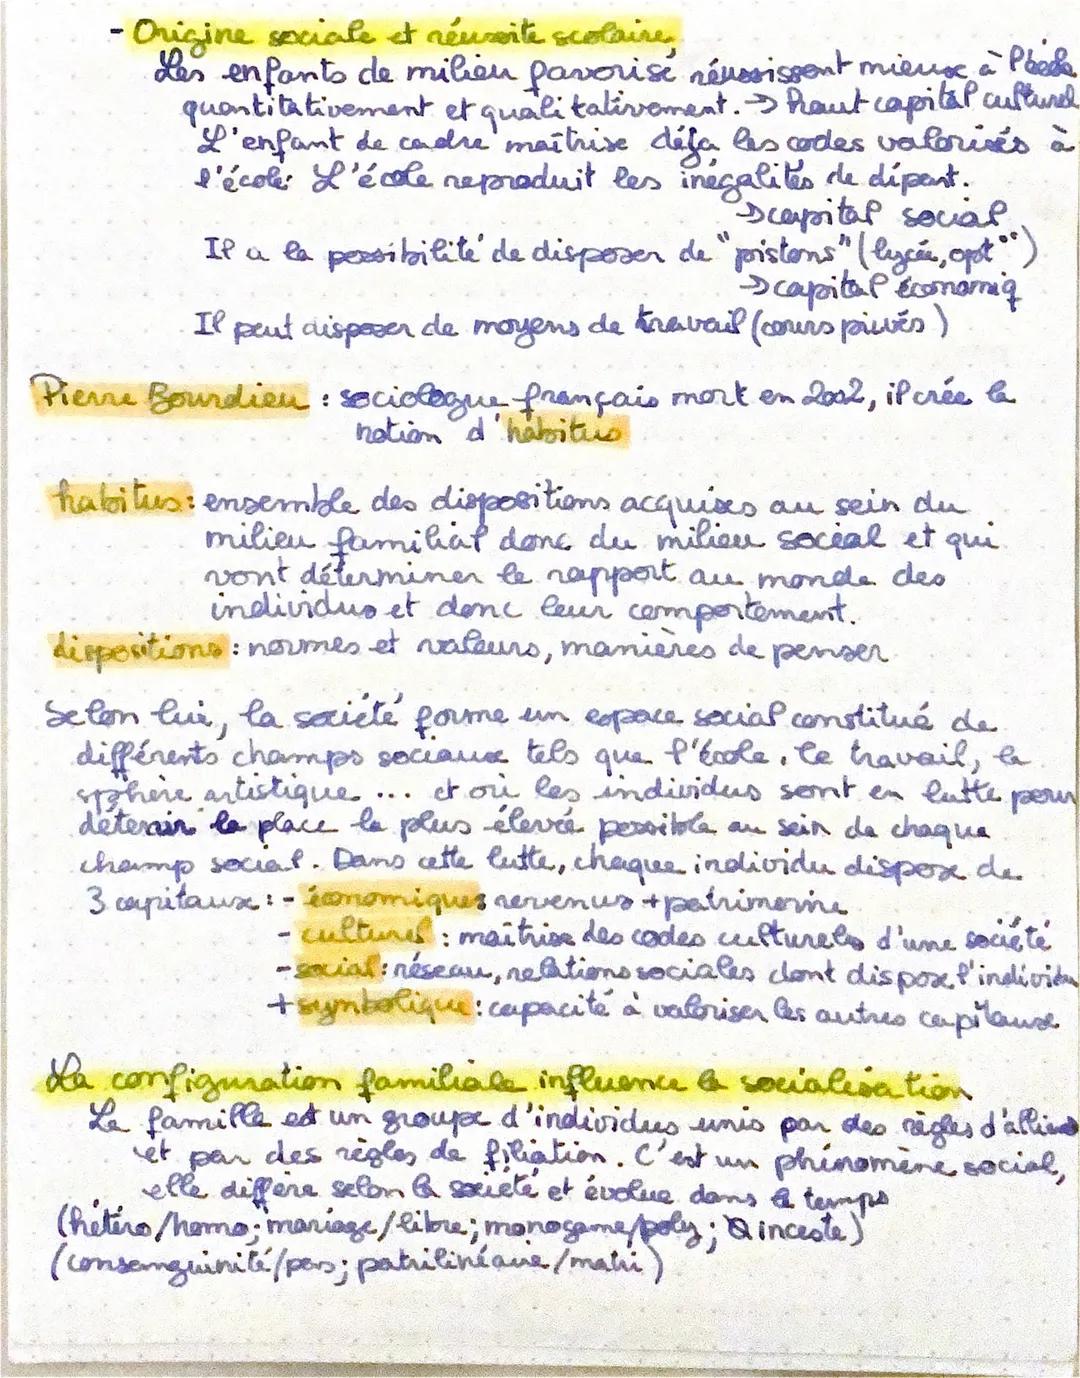 - Origine sociale et réussite scolaire
Les enfants de milieu favorisé réussissent mieux à l'école
quantitativement et qualitativement. → haut capital culturel
L'enfant de cadre maîtrise déja les codes valorisés à
l'école. L'école reproduit les inégalités de départ.
→ capital social
Il a la possibilité de disposer de "pistons" (lycée, opt°)
→ capital économiq
Il peut disposer de moyens de travail (cours privés)
Pierre Bourdieu : sociologue français mort en 2002, il crée la
notion d'habitus
habitus : ensemble des dispositions acquises au sein du
milieu familial donc du milieu social et qui
vont déterminer le rapport au monde des
individus et donc leur comportement.
dispositions : normes et valeurs, manières de penser
Selon lui, la société forme un espace social constitué de
différents champs sociaux tels que l'école, le travail, la
sphère artistique ... et où les individus sont en lutte pour
détenir la place la plus élevée possible au sein de chaque
champ social. Dans cette lutte, chaque individu dispose de
3 capitaux : - économiques revenus + patrimoine
- culturel : maîtrise des codes culturels d'une société
- social : réseau, relations sociales dont dispose l'individu
+ symbolique : capacité à valoriser les autres capitaux
La configuration familiale influence la socialisation
La famille est un groupe d'individus unis par des règles
et par des règles de filiation. C'est un phénomène social,
elle diffère selon la société et évolue dans le temps
(hétéro/homo; mariage/libre; monogame/poly; inceste)
(consanguinité/pas; patrilinéaire/matri)